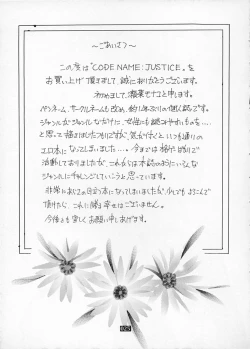 ～ごあいさつ～
この度は"CODE NAME:JUSTICE"を
お買い上げ頂きまして、誠にありがとうございます。
はじめまして、瀬菜モナコと申します。
ペンネーム、サークルネームも改め、約1年ぶりの個人誌です。
ジャンルがジャンルなだけに、女性にも読みやすいものを…
と思って描きはじめたつもりですが、気が付くといつも通りの
エロ本になってしまいました…。今までは格ゲーばかりで
活動しておりましたが、これからは本誌のようにいろんな
ジャンルにチャレンジしていこうと思っています。
非常に
になってしまいましたが、少しでもよろこんで
頂けたら、これに勝る幸せはございません。
今後とも宜しくお願い申しあげます。
025